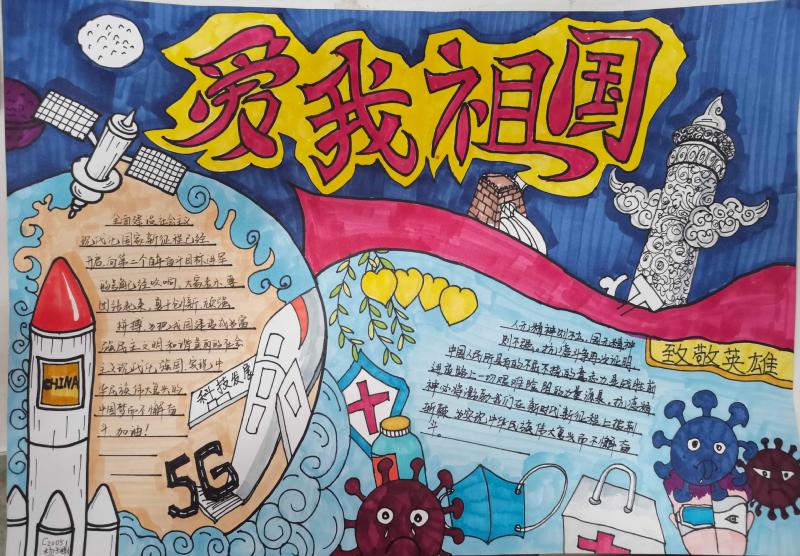 爱我祖国
全面建设社会主义
现代化国家新征程已经
开启,向第二个百年奋斗目标进军
的号角已经吹响,大家
团结起来,勇于创新,顽强
拼搏,为把我国建成为富
强民主文明和谐美丽的社会
主义现代化强国,实现中
华民族伟大复兴的
中国梦而不懈奋
斗,加油!
CHINA
科技发展
5G
人无精神则不立,国无精神
则不强,抗疫斗争再次证明,
中国人民所具有的不屈不挠的意志力,是战胜前
进道路上一切艰难险阻的力量源泉,抗疫精
神必将激励我们在新时代新征程上披荆
斩棘,为实现中华民族伟大复兴而不懈奋
斗。
致敬英雄